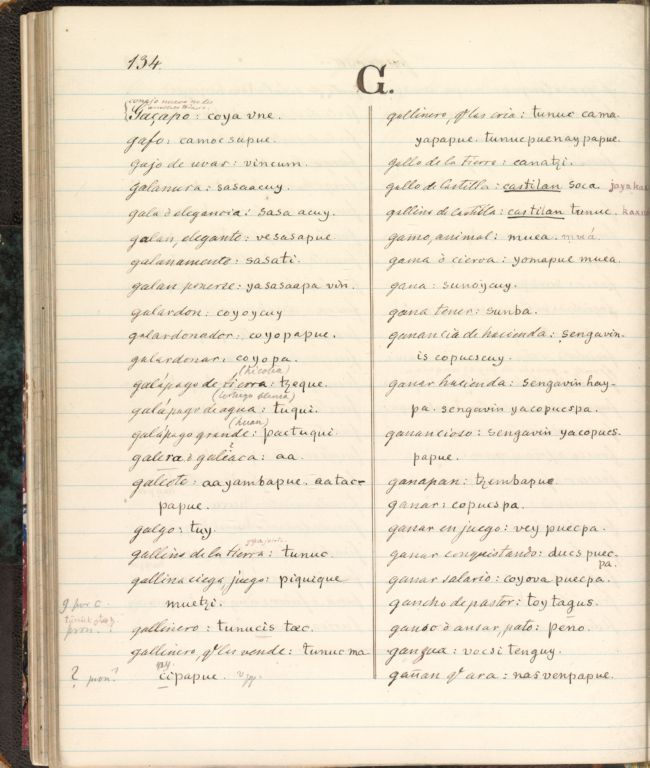 134.
G.
conejo nuevo no les
Gaçapo: coya vne.
gafo: camoc sapue.
gajo de uvas: vincum.
galanura: sasaacuy.
gala ò elegancia: sasa acuy.
galan, elegante: vesasapue
galanamente: sasati.
galan ponerse: yasasaapa vin.
galardon: coyoycuy
galardonador: coyopapue.
galardonar: coyopa.
(hicotea)
galápago de tierra: tzeque.
(tortuga blanca)
galápago de agua: tuqui.
(huan)
galápago grande: pactuqui.
galera ò galeaca: aa.
galeote: aayambapue. aatac-
papue.
galgo: tuy.
gallina de la tierra: tunuc.
gallina ciega, juego: piquique
muetzi.
g por c
pron. ?
gallinero: tunucis tæc.
gallinero, qe las vende: tunuc ma
ny
? pron?
cipapue.
gallinero, qe las cria: tunuc cama
yapapue. tunucpuenaypapue.
gallo de la tierra: canatzi.
gallo de Castilla: castilan soca. jaya
gallina de Castilla: castilan tunuc.
gamo, animal: muea. mueá
gama ò cierva: yomapue muea.
gana: sunoycuy.
gana tener: sunba.
ganancia de hacienda: sengavin-
is copuescuy.
ganar hacienda: sengavin hay-
pa. sengavin yacopuespa.
ganancioso: sengavin yacopues.
papue.
ganapan: tzimbapue
ganar: copuespa.
ganar en juego: vey puecpa.
ganar conquistando: ducs puec-
pa.
ganar salario: coyova puecpa.
gancho de pastor: toytagus.
ganso ò ansar, pato: peno.
gangua: vocsi tenguy.
gañan qe ara: nas venpapue.